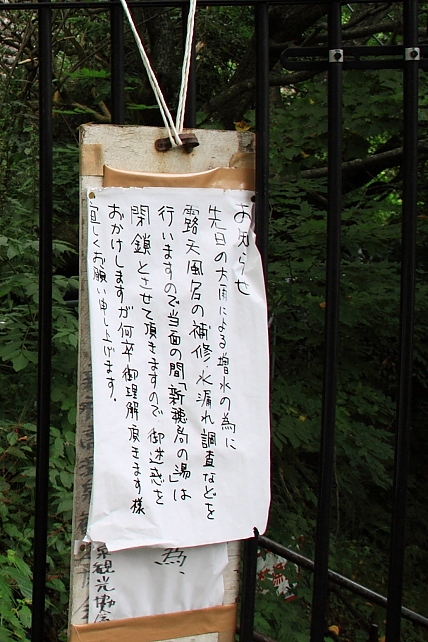 お知らせ
先日の大雨による増水の為に
露天風呂の補修・水漏れ調査などを
行いますので当面の間「新穂高の湯」は
閉鎖とさせて頂きますので御迷惑を
おかけしますが何卒御理解頂きます様
宜しくお願い申し上げます。
為、
観光協会